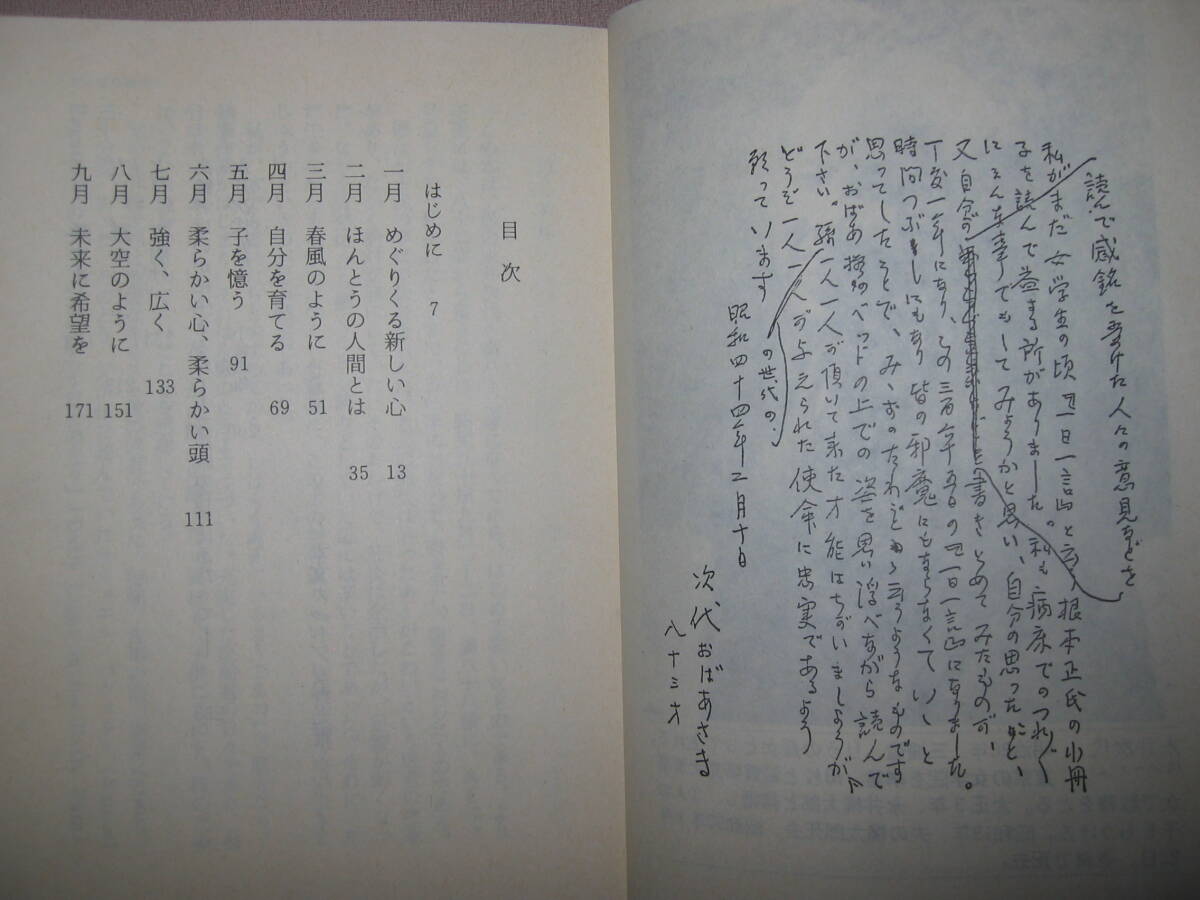 読んで感銘を受けた人々の意見などを
私がまだ女学生の頃『一日一言』と云う根本正氏の小冊
子を読んで益する所がありました。私も病床でのつれ〴〵
にそんな事でもしてみようかと思い、自分の思ったこと、
又自分の
書きとめてみたものが、
丁度一年になり、この三百六十五日の『一日一言』になりました。
時間つぶしにもなり皆の邪魔にもならなくていゝと
思ってしたことで、みゝずのたわごとゝ云うようなものです
が、おばあ様のベッドの上での姿を思い浮べながら読んで
下さい。孫一人一人が頂いて来た才能はちがいましょうが
どうぞ一人一人が与えられた使命に忠実であるよう
願っています
の世代の、
昭和四十四年二月十日
次代おばあさま
八十三才
目次
はじめに 7
一月 めぐりくる新しい心 13
二月 ほんとうの人間とは 35
三月 春風のように 51
四月 自分を育てる 69
五月 子を憶う 91
六月 柔らかい心、柔らかい頭 111
七月 強く、広く 133
八月 大空のように 151
九月 未来に希望を 171